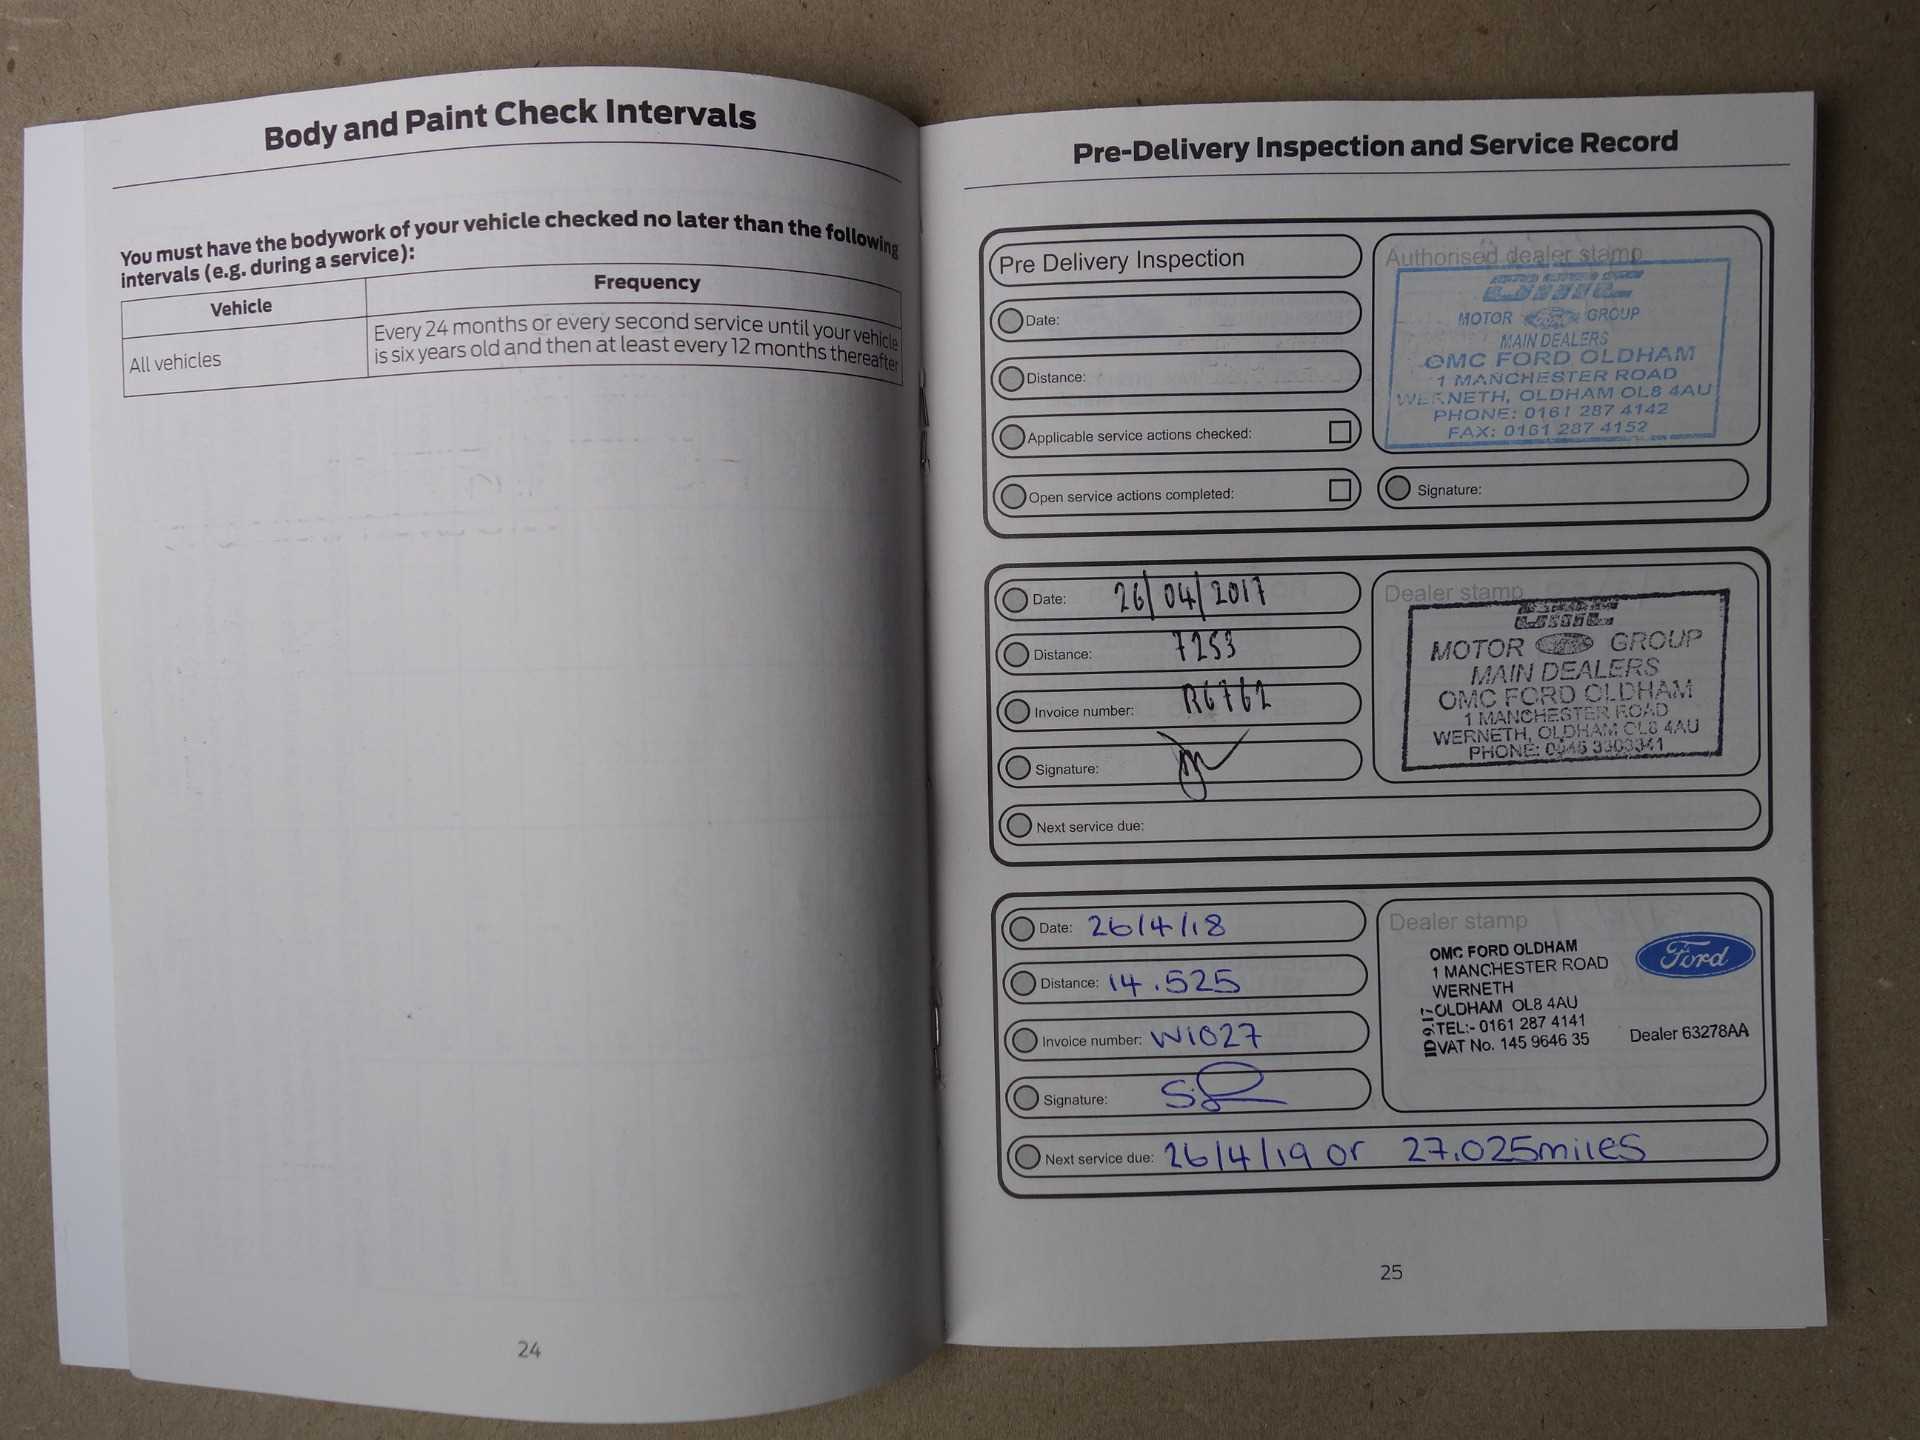 Body and Paint Check Intervals
You must have the bodywork of your vehicle checked no later than the following
intervals (e.g. during a service):
Vehicle
Frequency
All vehicles
Every 24 months or every second service until your vehicle
is six years old and then at least every 12 months thereafter
24
Pre-Delivery Inspection and Service Record
Pre Delivery Inspection
Date:
Distance:
Applicable service actions checked:
Open service actions completed:
Authorised dealer stamp
OMC
MOTOR Ford GROUP
MAIN DEALERS
OMC FORD OLDHAM
1 MANCHESTER ROAD
WERNETH, OLDHAM OL8 4AU
PHONE: 0161 287 4142
FAX: 0161 287 4152
Signature:
Date: 26/04/2017
Distance: 7253
Invoice number: R6762
Signature:
Next service due:
Dealer stamp
OMC
MOTOR Ford GROUP
MAIN DEALERS
OMC FORD OLDHAM
1 MANCHESTER ROAD
WERNETH, OLDHAM OL8 4AU
PHONE: 0845 3303341
Date: 26/4/18
Distance: 14.525
Invoice number: W1027
Signature:
Next service due: 26/4/19 or 27.025miles
Dealer stamp
OMC FORD OLDHAM
1 MANCHESTER ROAD
WERNETH
OLDHAM OL8 4AU
TEL:- 0161 287 4141
VAT No. 145 9646 35
Ford
Dealer 63278AA
25